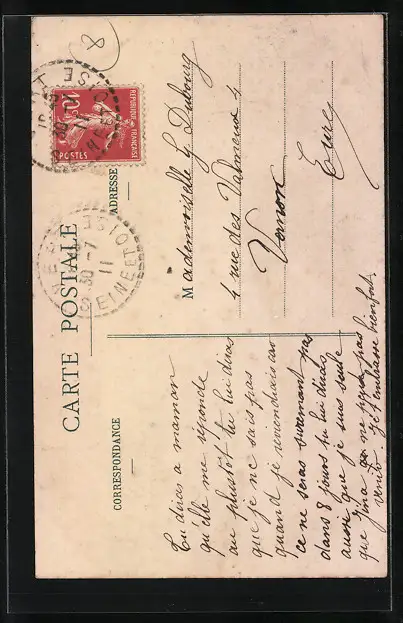 CARTE POSTALE
CORRESPONDANCE
ADRESSE
8
REPUBLIQUE FRANÇAISE
10c
POSTES
30 -7
11
SEINE ET OISE
Tu diras a maman
qu'elle me réponde
au plustot tu lui diras
que je ne sais pas
quand je reviendrais car
ce ne seras surement pas
dans 8 jours tu lui diras
aussi que je suis seule
que Gina ne pas
venir. Je t'embrasse bienfort
Mademoiselle G. Dubourg
4 rue des 4
Vernon
Eure